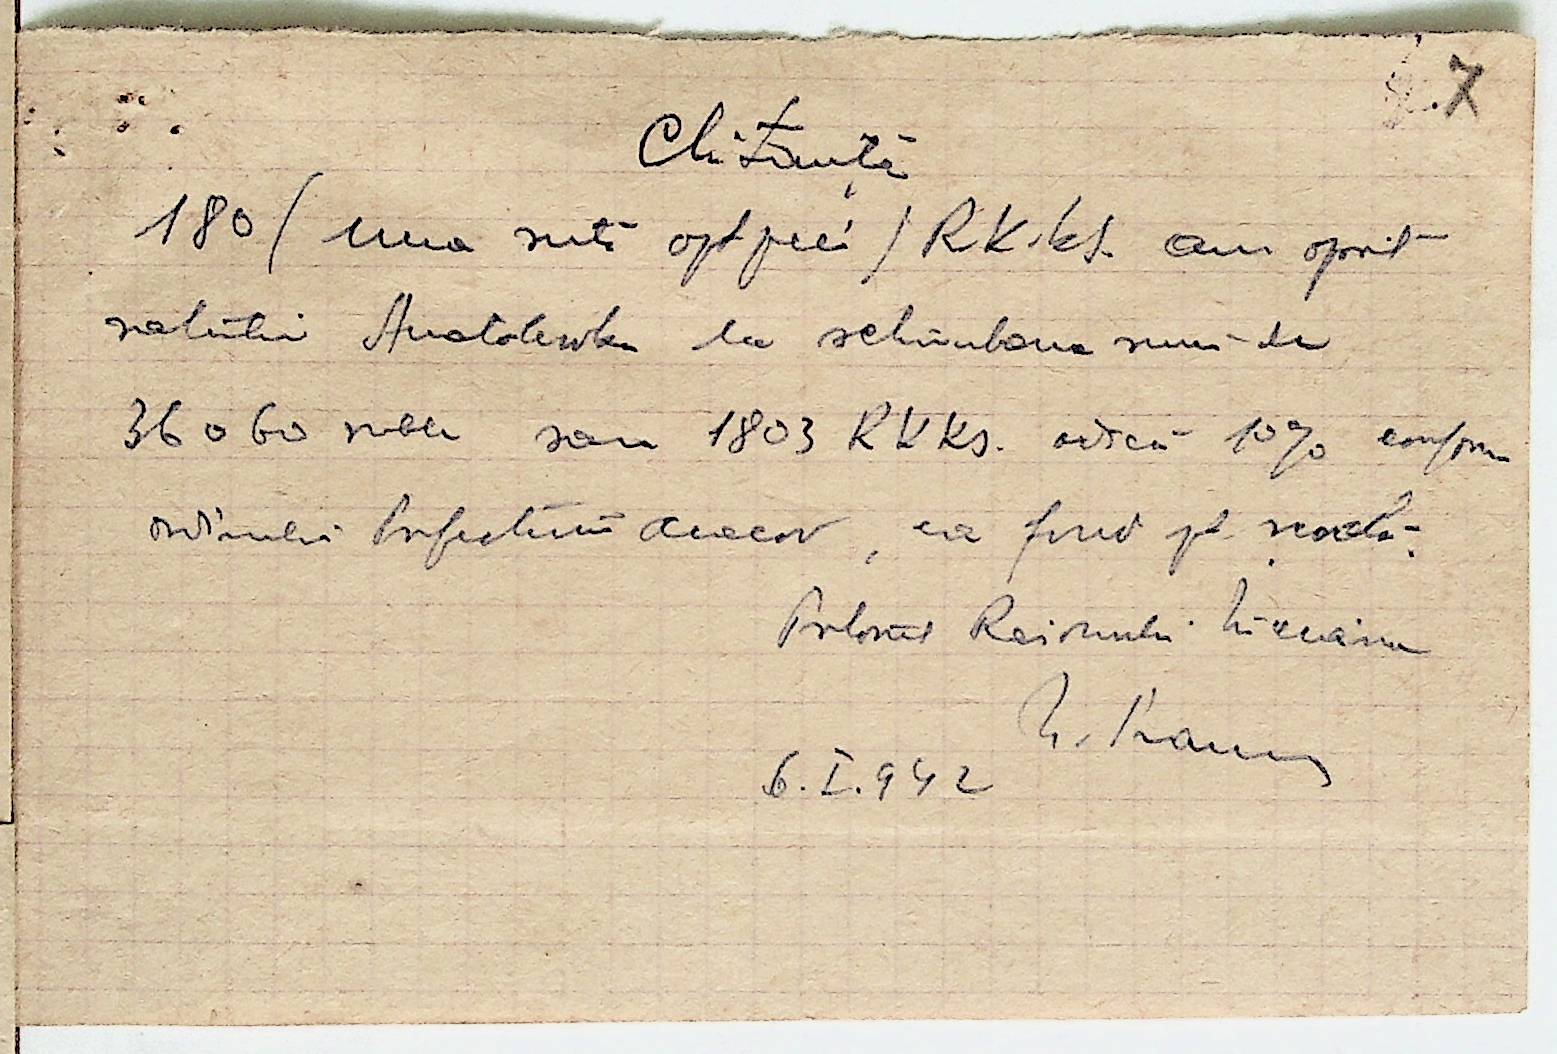 7
Chitanță
180 (una sută optzeci) RKKS. am oprit
satului Anatolewka la schimbarea sumei de
36060 ruble sau 1803 RKKS. adică 10% conform
ordinului Prefecturii, ca fond pt. școală.
Pretorul Raionului
6.I.942